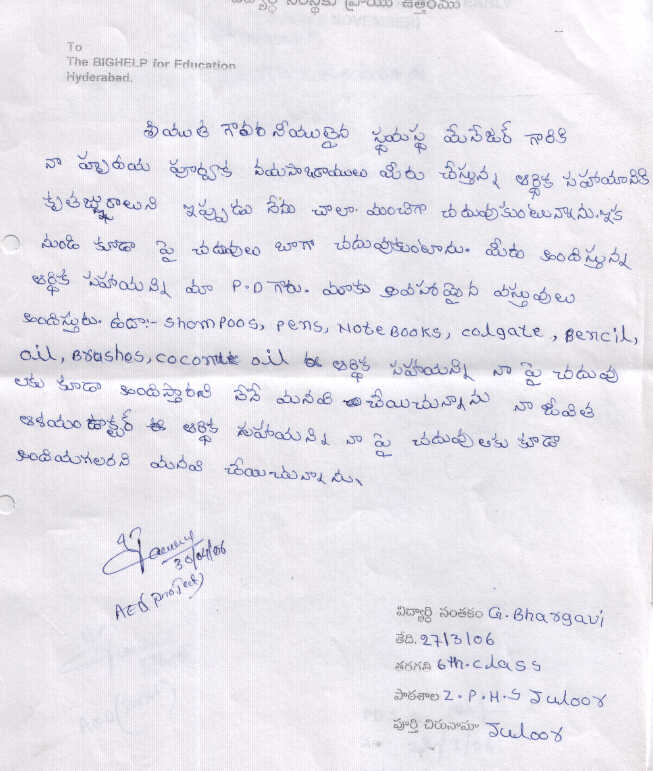 To
The BIGHELP for Education
Hyderabad.
శ్రీయుత గౌరవనీయులైన స్థయస్థ మేనేజర్ గారికి
నా హృదయ పూర్వక నమస్కారములు మీరు చేస్తున్న ఆర్థిక సహాయానికి
కృతజ్ఞురాలుని ఇప్పుడు నేను చాలా మంచిగా చదువుకుంటున్నాను. ఇక
నుండి కూడా పై చదువులు బాగా చదువుకుంటాను. మీరు అందిస్తున్న
ఆర్థిక సహాయన్ని మా P.D గారు. మాకు అవసరమైన వస్తువులు
అందిస్తురు. ఉదా:- Shompoos, Pens, Note Books, Colgate, Pencil,
Oil, Brashes, coconut oil ఈ ఆర్థిక సహాయన్ని నా పై చదువు
లకు కూడా అందిస్తారని నేనే మనవి చేయుచున్నాను నా జీవిత
ఆశయం డాక్టర్ ఈ ఆర్థిక సహాయన్ని నా పై చదువులకు కూడా
అందియగలరని మనవి చేయుచున్నాను.
30/04/06
AED Project)
విద్యార్థి సంతకం G. Bhargavi
తేది. 27/3/06
తరగతి 6th. class
పాఠశాల Z.P.H.S Juloor
పూర్తి చిరునామా Juloor